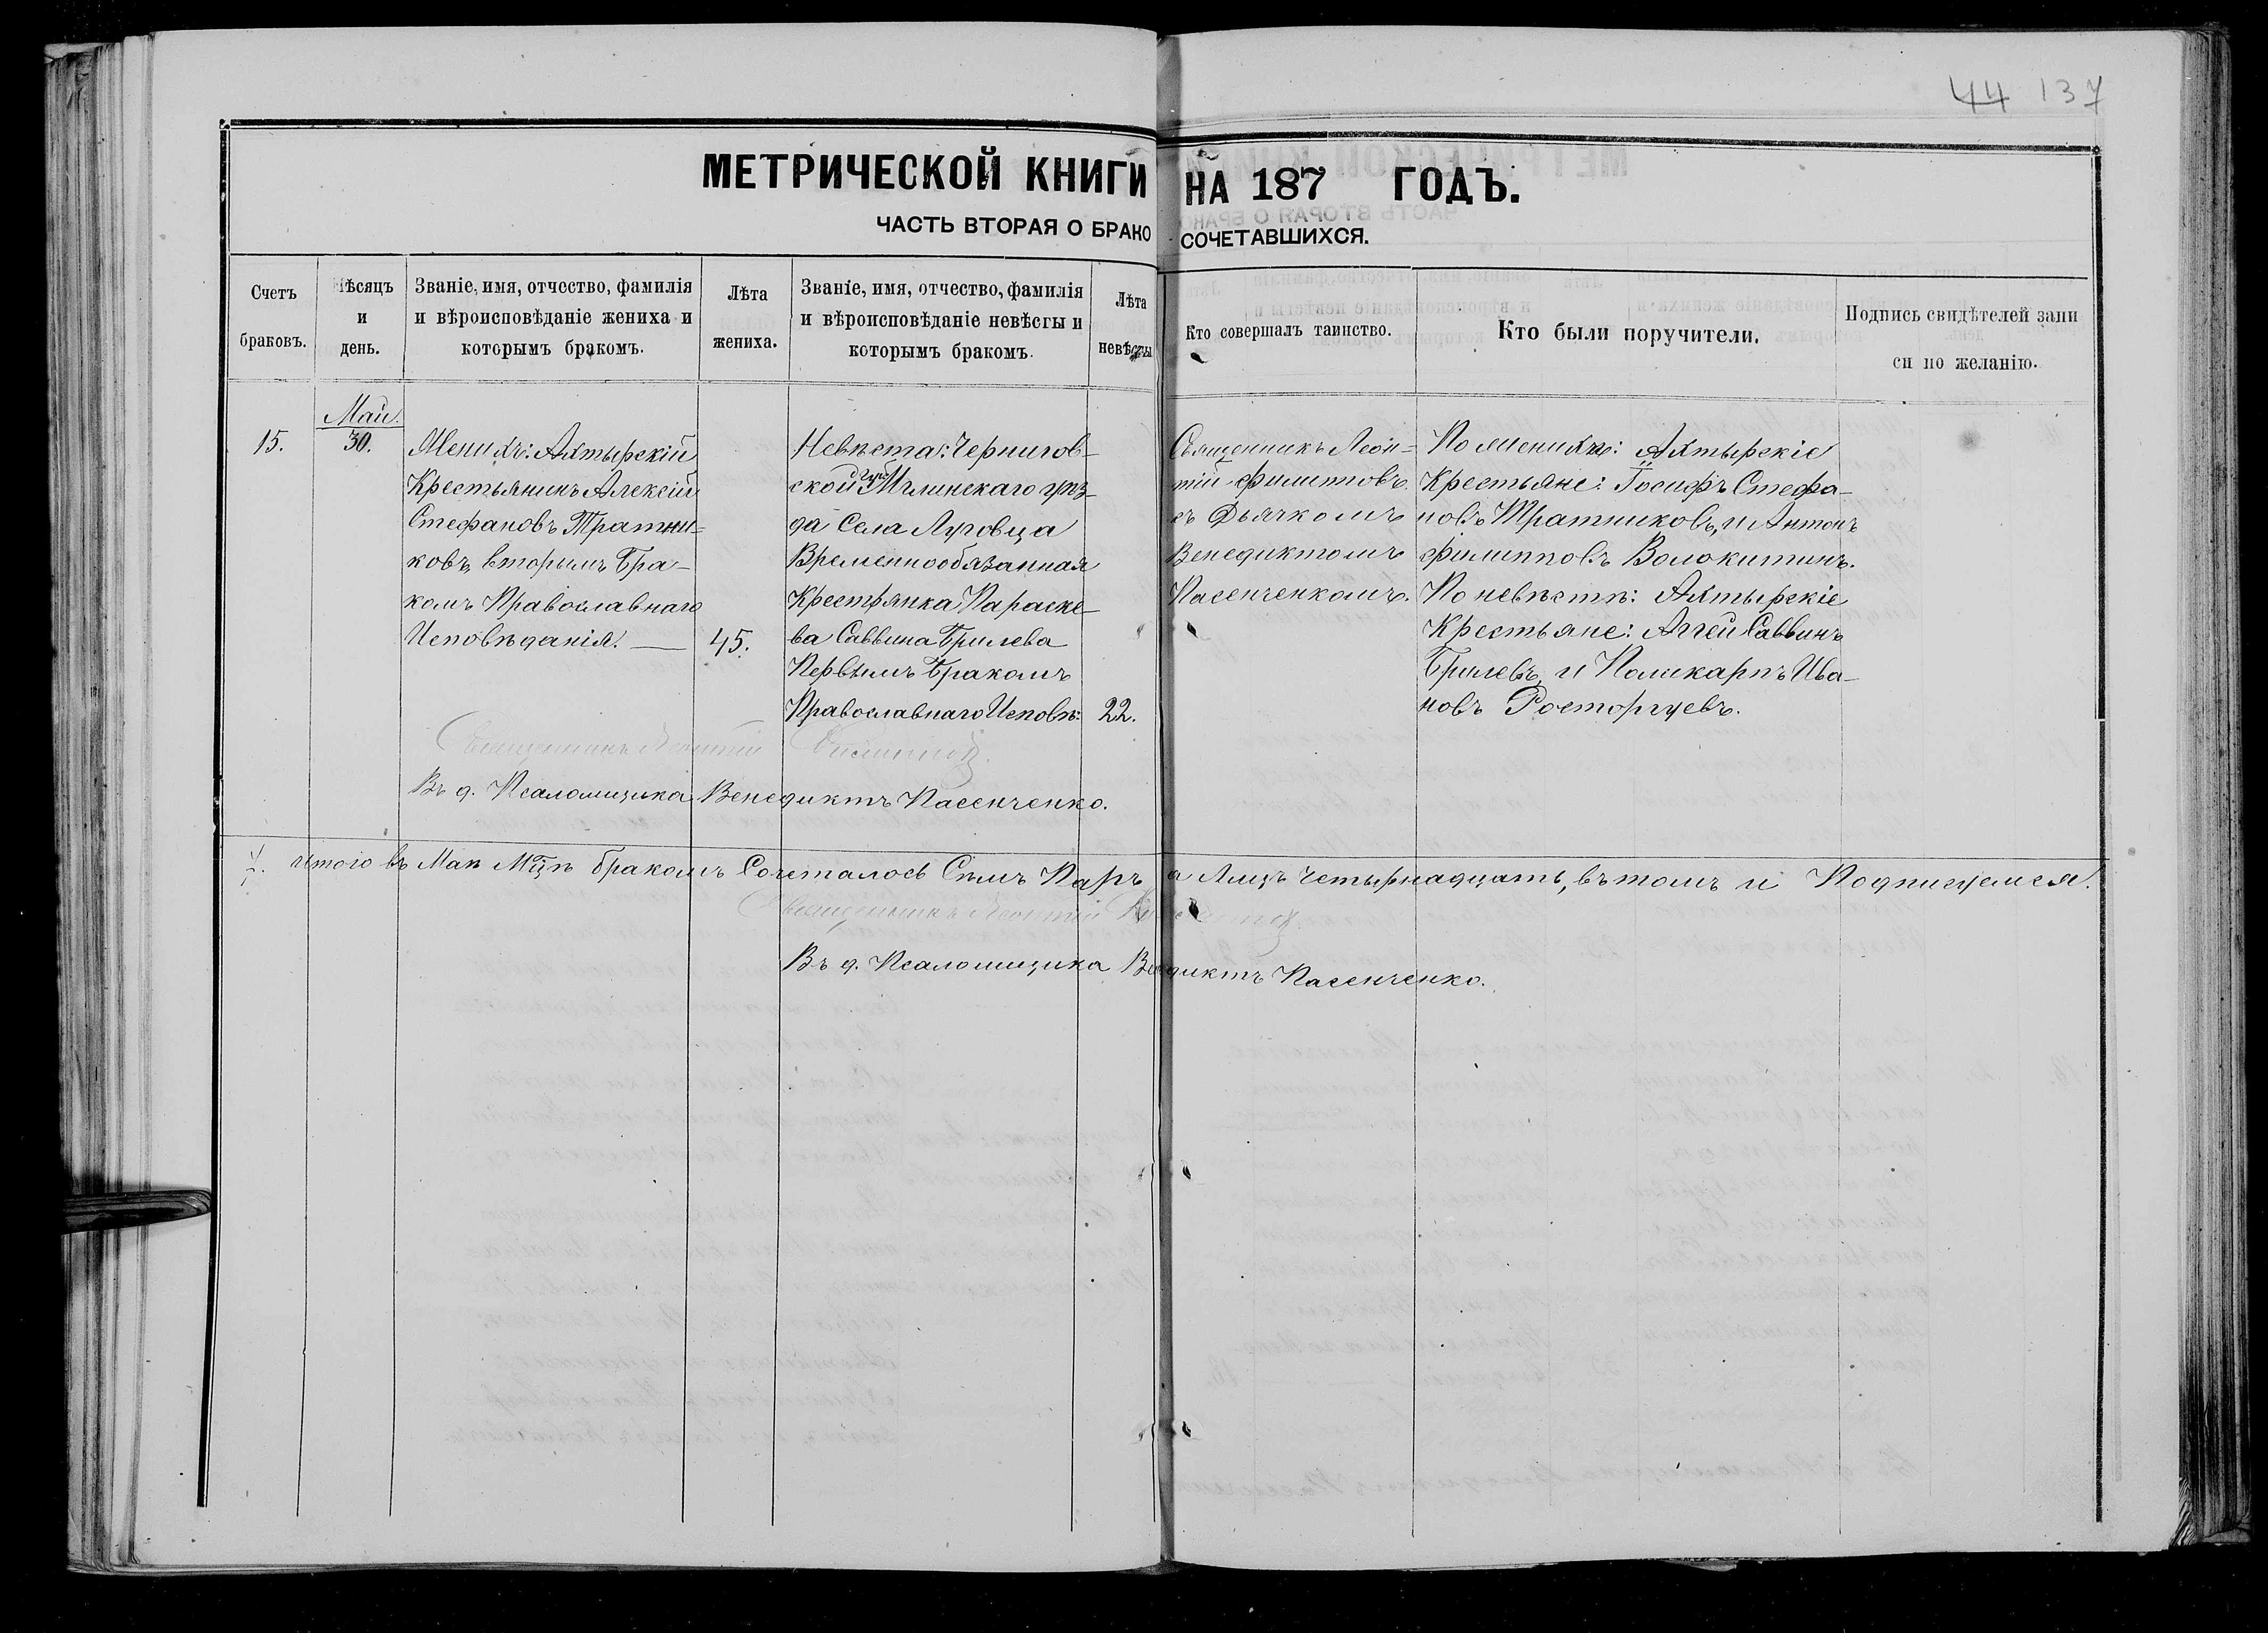 44 137
МЕТРИЧЕСКОЙ КНИГИ НА 187 ГОДЪ.
ЧАСТЬ ВТОРАЯ О БРАКОСОЧЕТАВШИХСЯ.
Счетъ
браковъ.
Мѣсяцъ
и
день.
Званіе, имя, отчество, фамилія
и вѣроисповѣданіе жениха и
которымъ бракомъ.
Лѣта
жениха.
Званіе, имя, отчество, фамилія
и вѣроисповѣданіе невѣсты и
которымъ бракомъ.
Лѣта
невѣсты
Кто совершалъ таинство.
Кто были поручители.
Подпись свидѣтелей запи
си по желанію.
15.
Маій.
30.
Женихъ: Ахтырскій
Крестьянинъ Алексій
Стефановъ Тратни-
ковъ, вторымъ Бра-
комъ Православнаго
Исповѣданія.
45.
Невѣста: Чернигов-
ской губ. Мглинскаго уѣз-
да Села Луговца
Временнообязанная
Крестьянка Параске-
ва Саввина Брилева
Первымъ Бракомъ
Православнаго Исповѣ:
22.
Священникъ Леон-
тій Филипповъ
съ Дьячкомъ
Венедиктомъ
Пасенченкомъ.
По женихѣ: Ахтырскіе
Крестьяне: Іосифъ Стефа-
новъ Тратниковъ, и Антонъ
Филипповъ Волокитинъ.
По невѣстѣ: Ахтырскіе
Крестьяне: Аггей Саввинъ
Брилевъ, и Поликарпъ Ива-
новъ Росторгуевъ.
Священникъ Леонтій Филипповъ.
Въ д. Псаломщика Венедиктъ Пасенченко.
Итого въ Маѣ Мцѣ бракомъ Сочеталось Сѣмъ Паръ, а Лицъ Четырнадцать, въ томъ и Подписуемся.
Священникъ Леонтій Филипповъ.
Въ д. Псаломщика Венедиктъ Пасенченко.